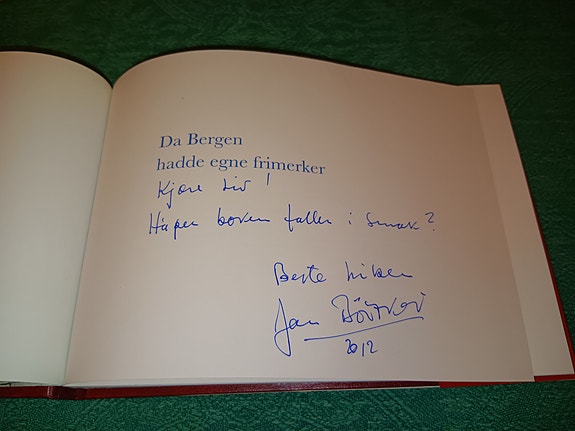 Da Bergen
hadde egne frimerker
Kjære Liv!
Håper boken faller i smak?
Beste hilsen
Jan
2012